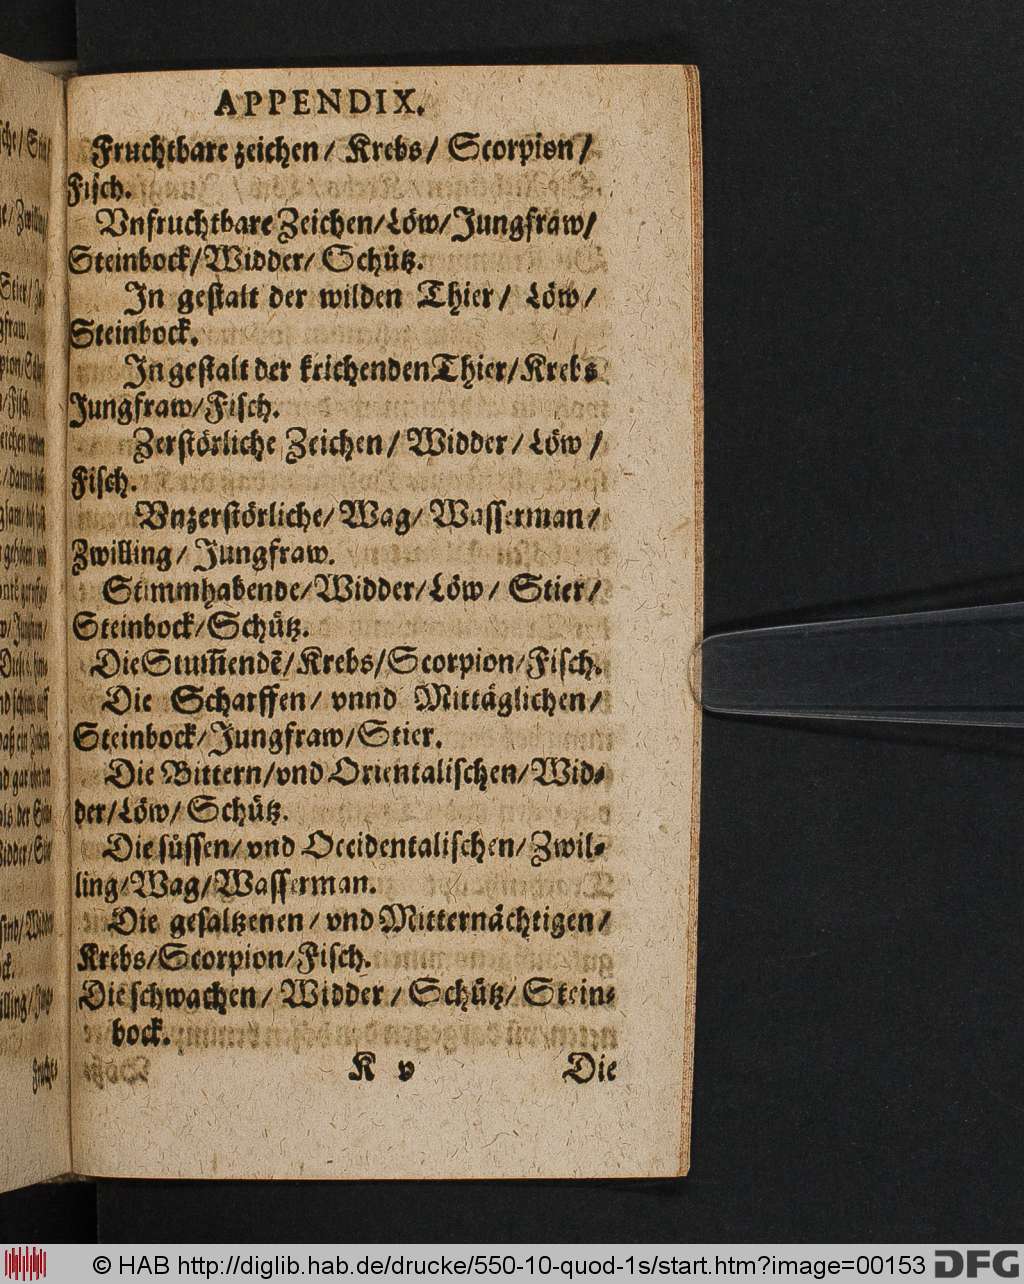 APPENDIX.
Fruchtbare zeichen/ Krebs/ Scorpion/
Fisch.
Vnfruchtbare Zeichen/Löw/Jungfraw/
Steinbock/Widder/ Schütz.
In gestalt der wilden Thier/ Löw/
Steinbock.
In gestalt der krichenden Thier/Krebs
Jungfraw/Fisch.
Zerstörliche Zeichen/ Widder/Löw/
Fisch.
Vnzerstörliche/Wag/ Wasserman/
Zwilling/ Jungfraw.
Stimmhabende/Widder/Löw/ Stier/
Steinbock/Schütz.
Die Stum̃endẽ/Krebs/Scorpion/Fisch.
Die Scharffen/ vnnd Mittäglichen/
Steinbock/Jungfraw/Stier.
Die Bittern/vnd Orientalischen/Wid-
der/Löw/ Schütz.
Die süssen/ vnd Occidentalischen/ Zwil-
ling/Wag/Wasserman.
Die gesaltzenen/ vnd Mitternächtigen/
Krebs/Scorpion/Fisch.
Die schwachen/ Widder/ Schütz/ Stein-
bock.
K v Die
© HAB http://diglib.hab.de/drucke/550-10-quod-1s/start.htm?image=00153 DFG